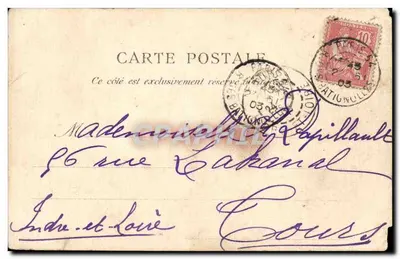 CARTE POSTALE
Ce côté est exclusivement réservé
10
BATIGNOLLES
03
BATIGNOLLES
03
Mademoiselle Lapillault
56 rue Lakanal
Indre-et-Loire
Tours